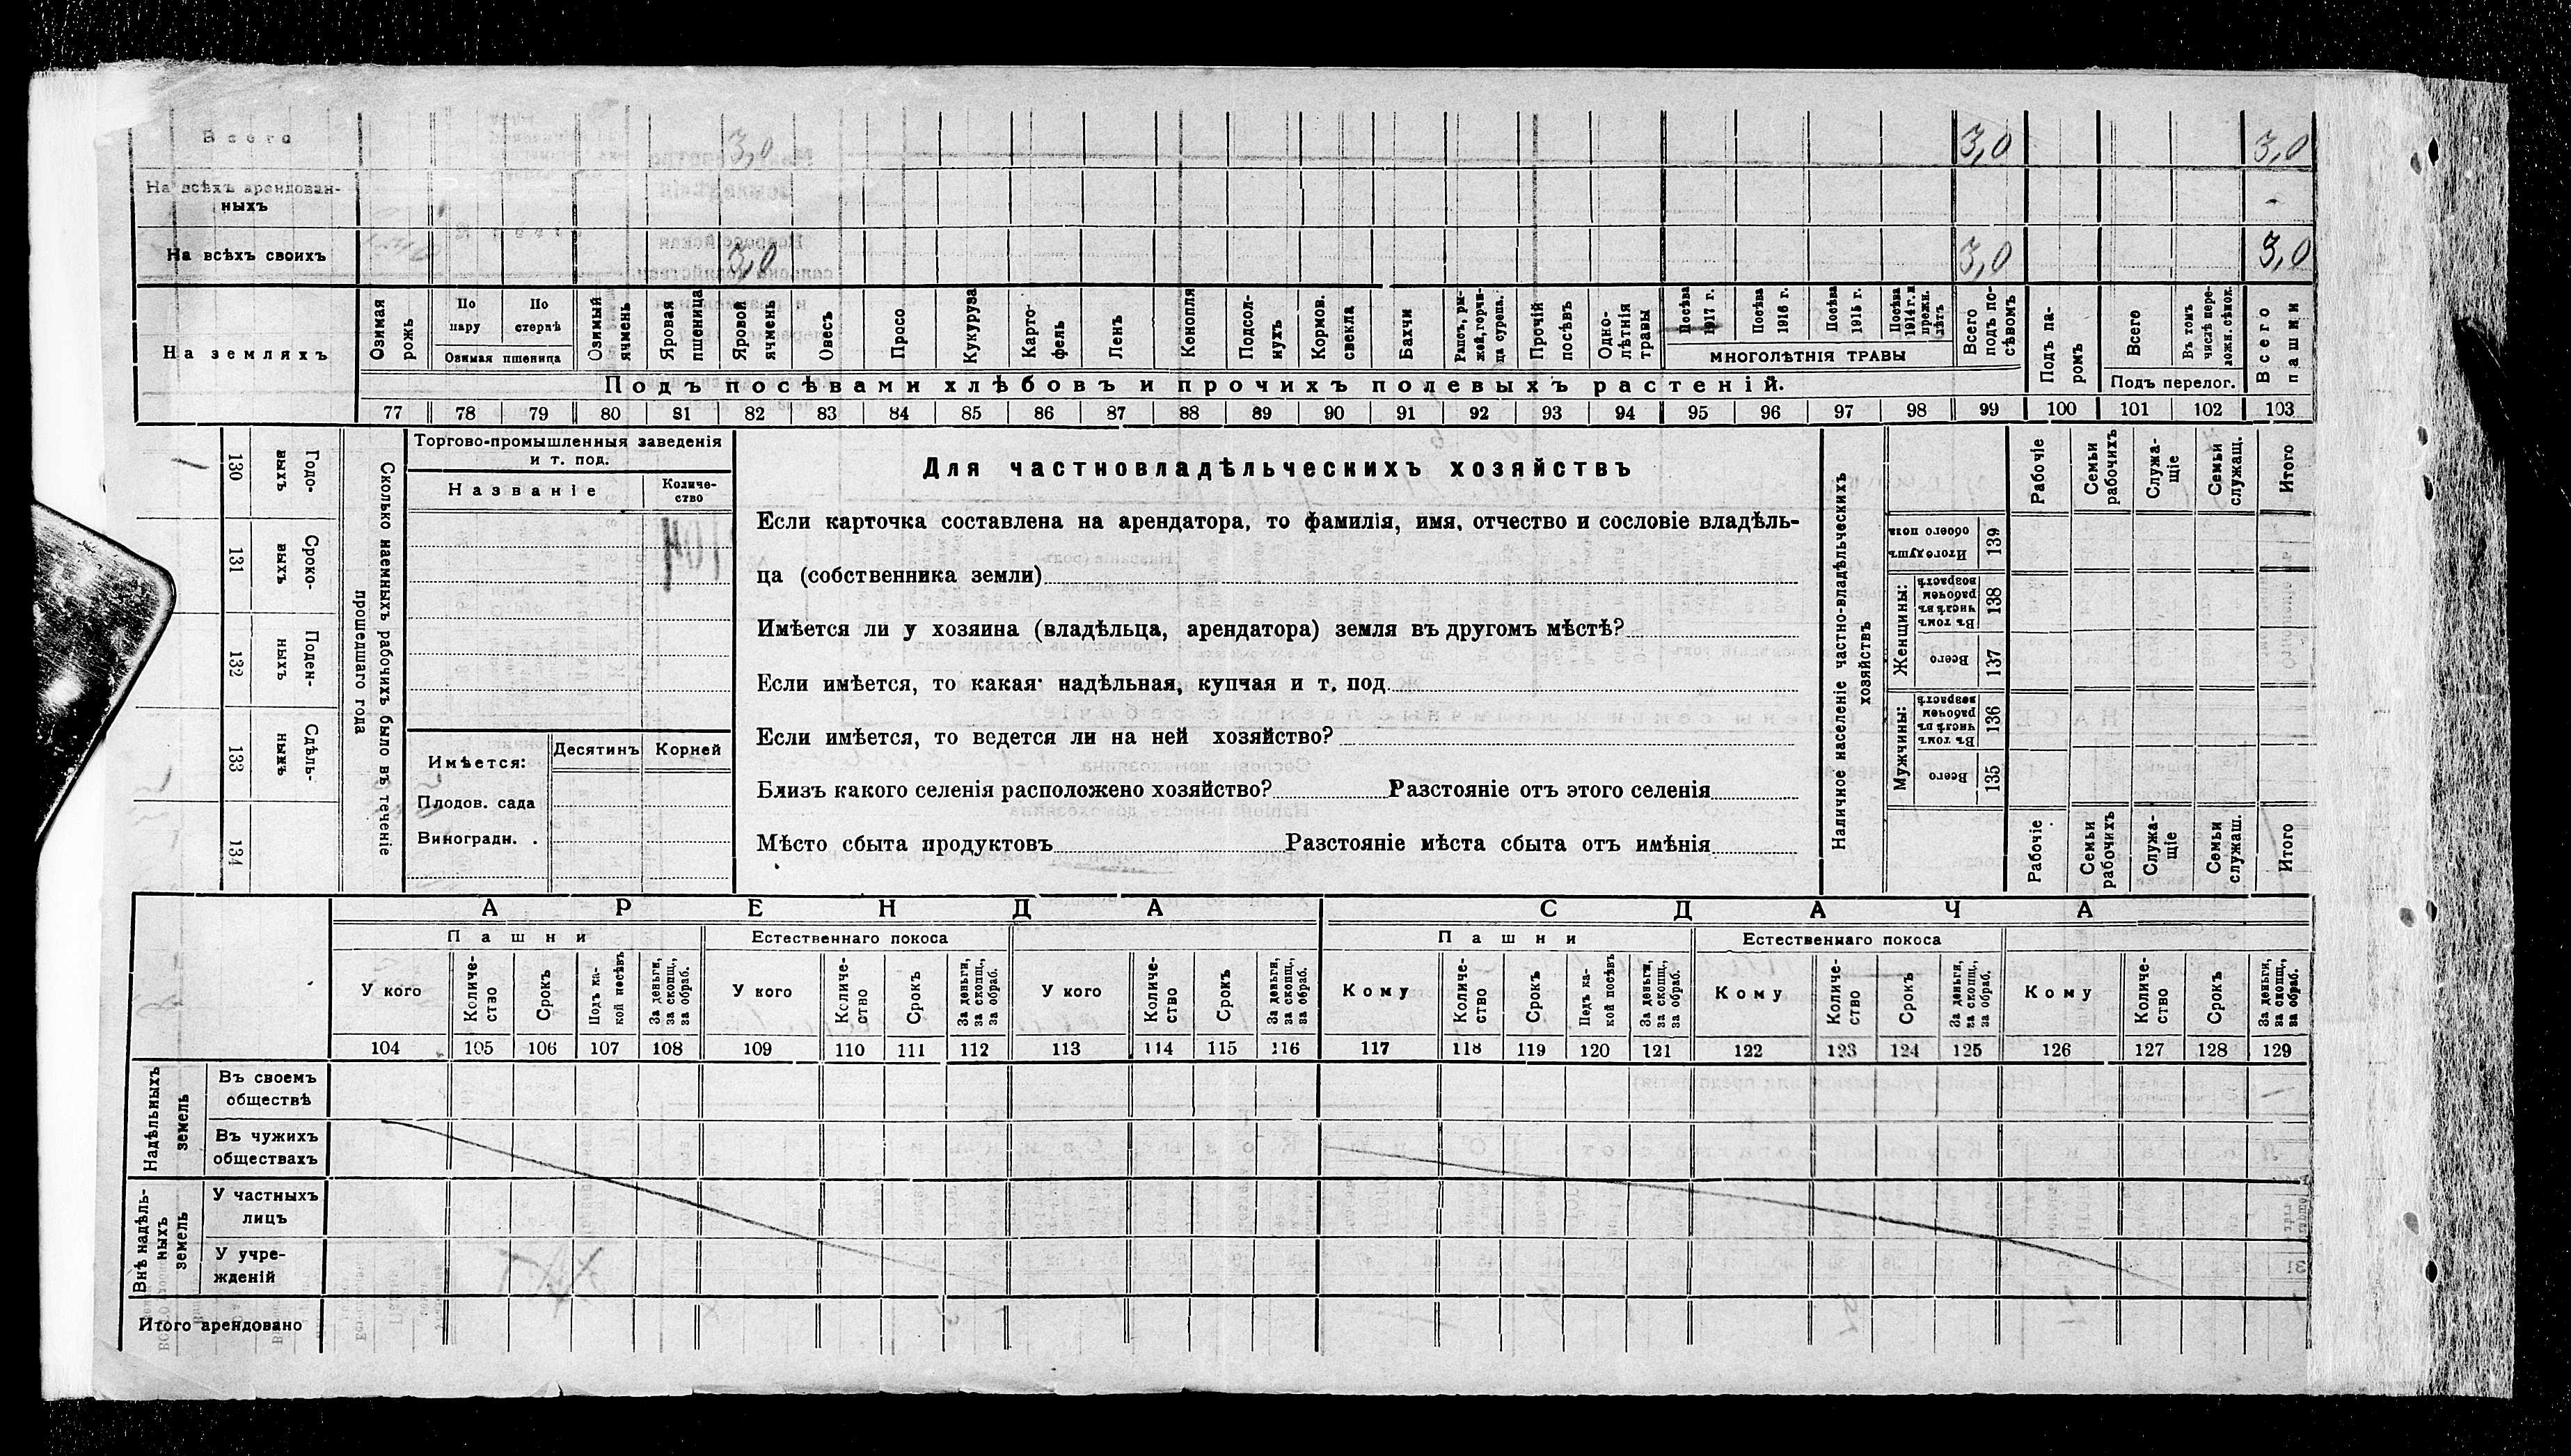 Всего 3,0 3,0 3,0
На всѣхъ арендован-
ныхъ -
На всѣхъ своихъ 3,0 3,0 3,0
На земляхъ
Озимая рожь
По пару
По стернѣ
Озимая пшеница
Озимый ячмень
Яровая пшеница
Яровой ячмень
Овесъ
Просо
Кукуруза
Карто-
фель
Ленъ
Конопля
Подсол-
нухъ
Кормов.
свекла
Бахчи
Рапсъ, ры-
жей, горчи-
ца сурепа.
Прочій посѣвъ
Одно-
лѣтнія травы
Посѣва 1917 г.
Посѣва 1916 г.
Посѣва 1915 г.
Посѣва 1914 г. и прежн. лѣтъ
МНОГОЛѢТНІЯ ТРАВЫ
Всего подъ по-
сѣвомъ
Подъ па-
ромъ
Всего
Въ томъ числѣ пере-
ложн. сѣнок.
Подъ перелог.
Всего пашни
Подъ посѣвами хлѣбовъ и прочихъ полевыхъ растеній.
77 78 79 80 81 82 83 84 85 86 87 88 89 90 91 92 93 94 95 96 97 98 99 100 101 102 103
130 Годо-
выхъ
131 Сроко-
выхъ
132 Поден-
ныхъ
133 Сдѣль-
ныхъ
134
Сколько наемныхъ рабочихъ было въ теченіе
прошедшаго года
Торгово-промышленныя заведенія
и т. под.
Названіе
Количе-
ство
Имѣется:
Десятинъ
Корней
Плодов. сада
Виноградн. .
Для частновладѣльческихъ хозяйствъ
Если карточка составлена на арендатора, то фамилія, имя, отчество и сословіе владѣль-
ца (собственника земли)
Имѣется ли у хозяина (владѣльца, арендатора) земля въ другомъ мѣстѣ?
Если имѣется, то какая· надѣльная, купчая и т. под.
Если имѣется, то ведется ли на ней хозяйство?
Близъ какого селенія расположено хозяйство? Разстояніе отъ этого селенія
Мѣсто сбыта продуктовъ Разстояніе мѣста сбыта отъ имѣнія
Наличное населеніе частно-владѣльческихъ
хозяйствъ
Рабочіе
Семьи рабочихъ
Служа-
щіе
Семьи служащ.
Итого
Итого душъ обоего пола 139
Женщины:
Въ томъ числѣ въ рабочемъ возрастѣ 138
Всего 137
Мужчины:
Въ томъ числѣ въ рабочемъ возрастѣ 136
Всего 135
Рабочіе
Семьи рабочихъ
Служа-
щіе
Семьи служащ.
Итого
АРЕНДА СДАЧА
Пашни Естественнаго покоса Пашни Естественнаго покоса
У кого
Количе-
ство
Срокъ
Подъ ка-
кой посѣвъ
За деньги,
за скопщ.,
за обраб.
У кого
Количе-
ство
Срокъ
За деньги,
за скопщ.,
за обраб.
У кого
Количе-
ство
Срокъ
За деньги,
за скопщ.,
за обраб.
Кому
Количе-
ство
Срокъ
Подъ ка-
кой посѣвъ
За деньги,
за скопщ.,
за обраб.
Кому
Количе-
ство
Срокъ
За деньги,
за скопщ.,
за обраб.
Кому
Количе-
ство
Срокъ
За деньги,
за скопщ.,
за обраб.
104 105 106 107 108 109 110 111 112 113 114 115 116 117 118 119 120 121 122 123 124 125 126 127 128 129
Надѣльныхъ
земель
Въ своемъ
обществѣ
Въ чужихъ
обществахъ
Внѣ надѣль-
ныхъ
земель
У частныхъ
лицъ
У учре-
жденій
Итого арендовано